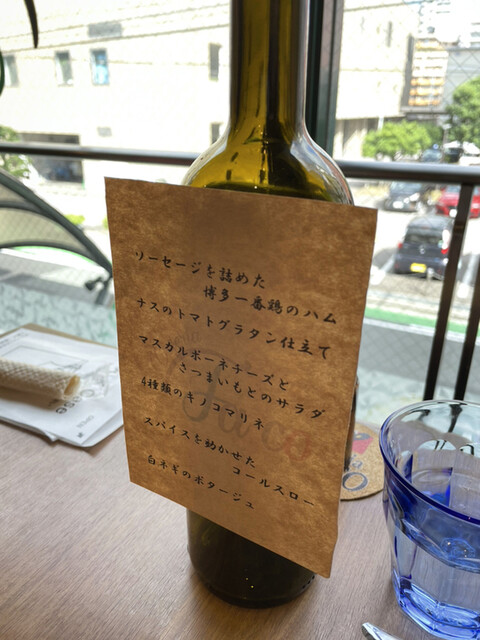 ソーセージを詰めた
博多一番鶏のハム
ナスのトマトグラタン仕立て
マスカルポーネチーズと
さつまいものサラダ
4種類のキノコマリネ
スパイスを効かせた
コールスロー
白ネギのポタージュ